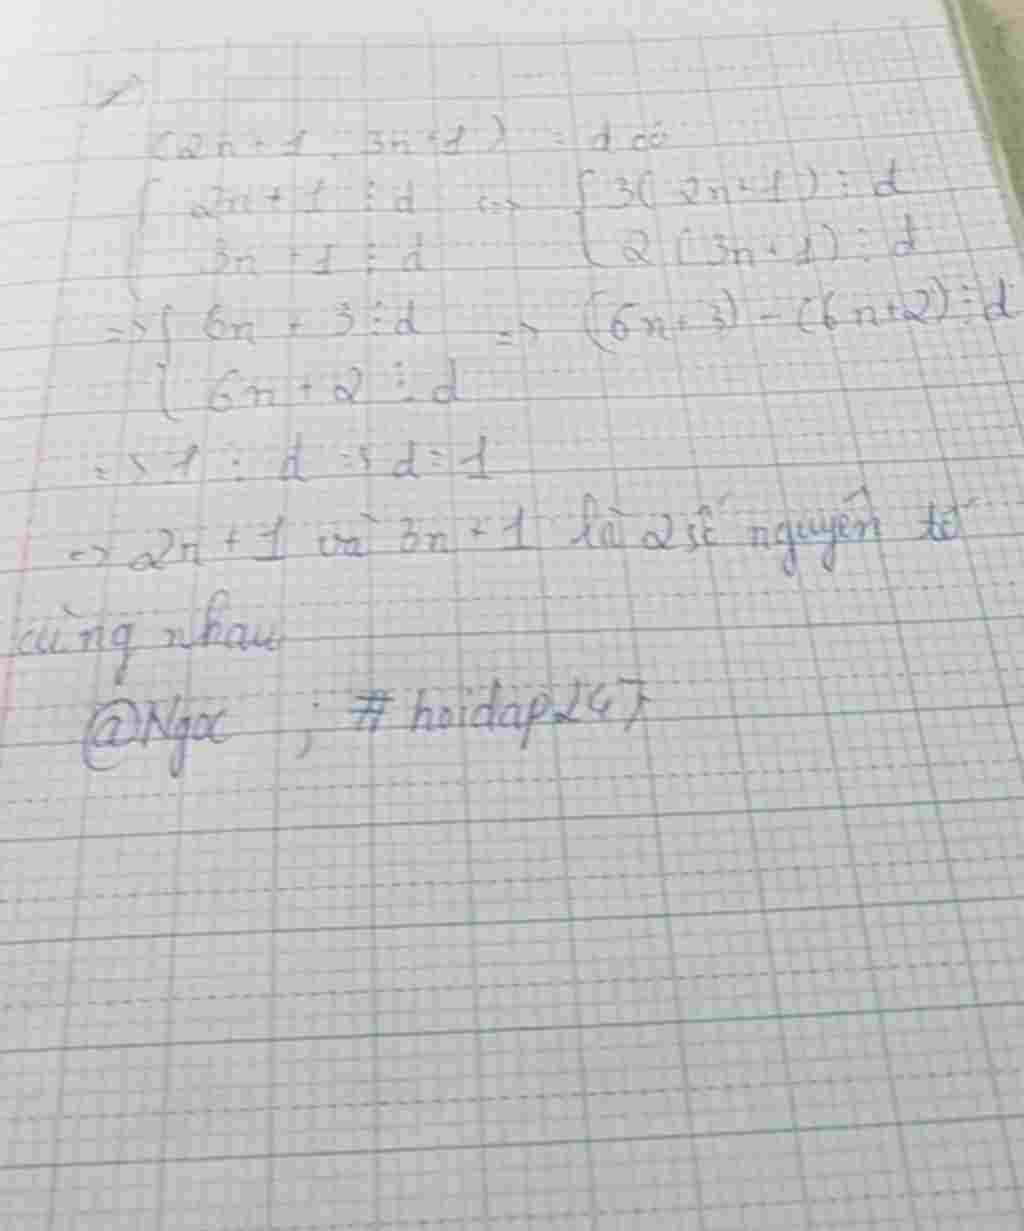 (2n+1, 3n+1) = d có
{ 2n+1 ⋮ d <=> { 3(2n+1) ⋮ d
{ 3n+1 ⋮ d { 2(3n+1) ⋮ d
=> { 6n+3 ⋮ d => (6n+3) - (6n+2) ⋮ d
{ 6n+2 ⋮ d
=> 1 ⋮ d => d = 1
=> 2n+1 và 3n+1 là 2 số nguyên tố
cùng nhau
@Ngoc ; # hoidap247